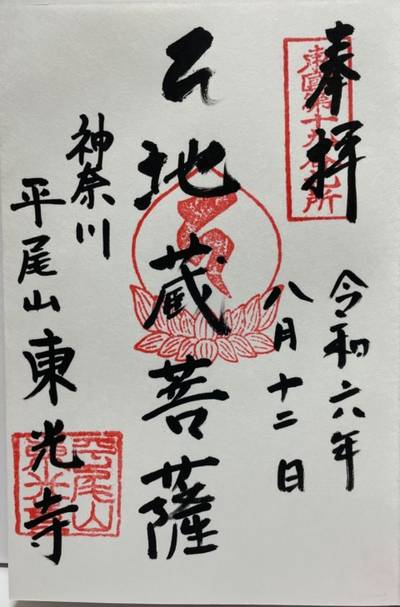 奉拝
令和六年
八月十二日
地蔵菩薩
神奈川
平尾山東光寺
平尾山
東光寺